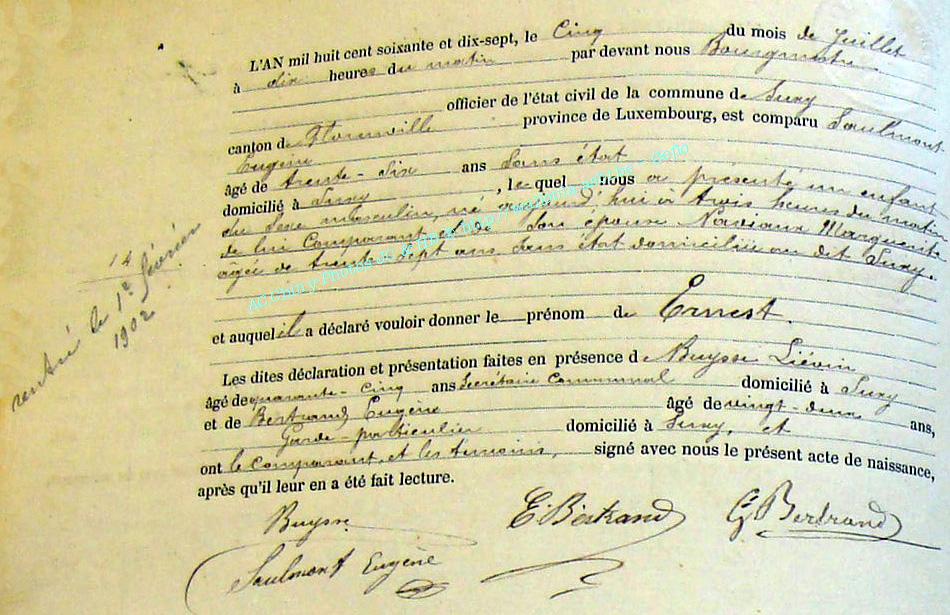 L'AN mil huit cent soixante et dix-sept, le Cinq du mois de Juillet
à dix heures du matin par devant nous Bourgmestre
officier de l'état civil de la commune de Suxy
canton de Florenville province de Luxembourg, est comparu Saulmont
Eugène
âgé de trente-six ans Sans état
domicilié à Suxy, le quel nous a présenté un enfant
du Sexe masculin, né aujourd'hui à trois heures du matin
de lui Comparant et de Son épouse Marguerite
âgée de trente Sept ans Sans état domiciliée au dit Suxy.
et auquel il a déclaré vouloir donner le prénom de Ernest.
Les dites déclaration et présentation faites en présence de Buysse Liévin
âgé de quarante-cinq ans Secrétaire Communal domicilié à Suxy
et de Bertrand Eugène âgé de vingt-deux ans,
Garde-particulier domicilié à Suxy, et
ont le comparant et les témoins, signé avec nous le présent acte de naissance,
après qu'il leur en a été fait lecture.
Buysse E Bertrand G Bertrand
Saulmont Eugène
14
le 1er février
1902
AC Chiny Photos